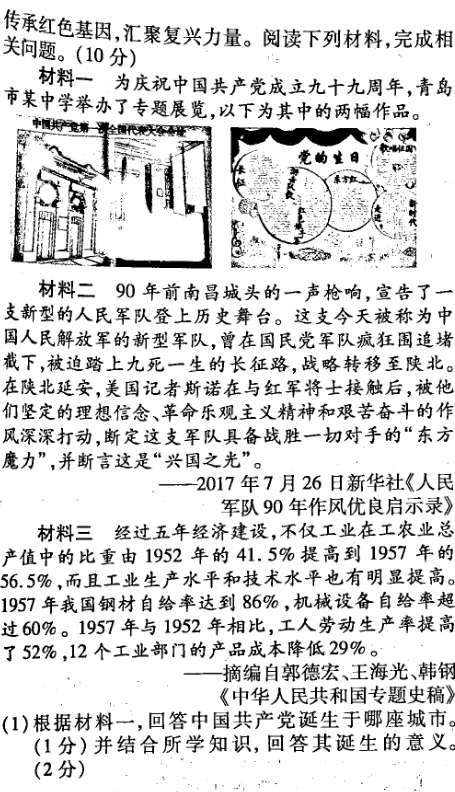 传承红色基因,汇聚复兴力量。阅读下列材料,完成相
关问题。(10分)
材料一 为庆祝中国共产党成立九十九周年,青岛
市某中学举办了专题展览,以下为其中的两幅作品。
中国共产党第一次全国代表大会会址
党的生日
长征
东方红
新时代
材料二 90年前南昌城头的一声枪响,宣告了一
支新型的人民军队登上历史舞台。这支今天被称为中
国人民解放军的新型军队,曾在国民党军队疯狂围追堵
截下,被迫踏上九死一生的长征路,战略转移至陕北。
在陕北延安,美国记者斯诺在与红军将士接触后,被他
们坚定的理想信念、革命乐观主义精神和艰苦奋斗的作
风深深打动,断定这支军队具备战胜一切对手的“东方
魔力”,并断言这是“兴国之光”。
——2017年7月26日新华社《人民
军队90年作风优良启示录》
材料三 经过五年经济建设,不仅工业在工农业总
产值中的比重由1952年的41.5%提高到1957年的
56.5%,而且工业生产水平和技术水平也有明显提高。
1957年我国钢材自给率达到86%,机械设备自给率超
过60%。1957年与1952年相比,工人劳动生产率提高
了52%,12个工业部门的产品成本降低29%。
——摘编自郭德宏、王海光、韩钢
《中华人民共和国专题史稿》
(1)根据材料一,回答中国共产党诞生于哪座城市。
(1分)并结合所学知识,回答其诞生的意义。
(2分)